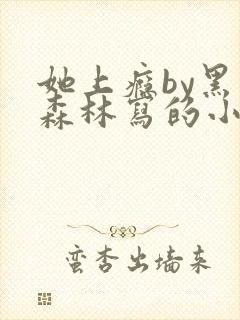 她上癮by黑
森林寫的小
蛮杏出墙来